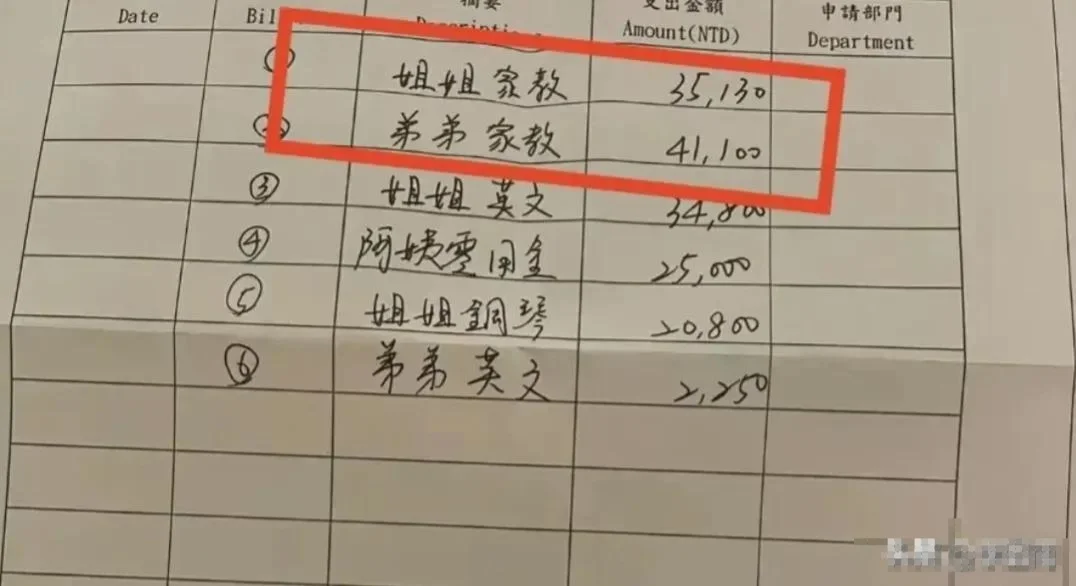 摘要 支出金額 申請部門
Date Bil Amount(NTD) Department
① 姐姐家教 35,130
弟弟家教 41,100
③ 姐姐英文 34,800
④ 阿姨零用金 25,000
⑤ 姐姐鋼琴 20,800
⑥ 弟弟英文 2,250